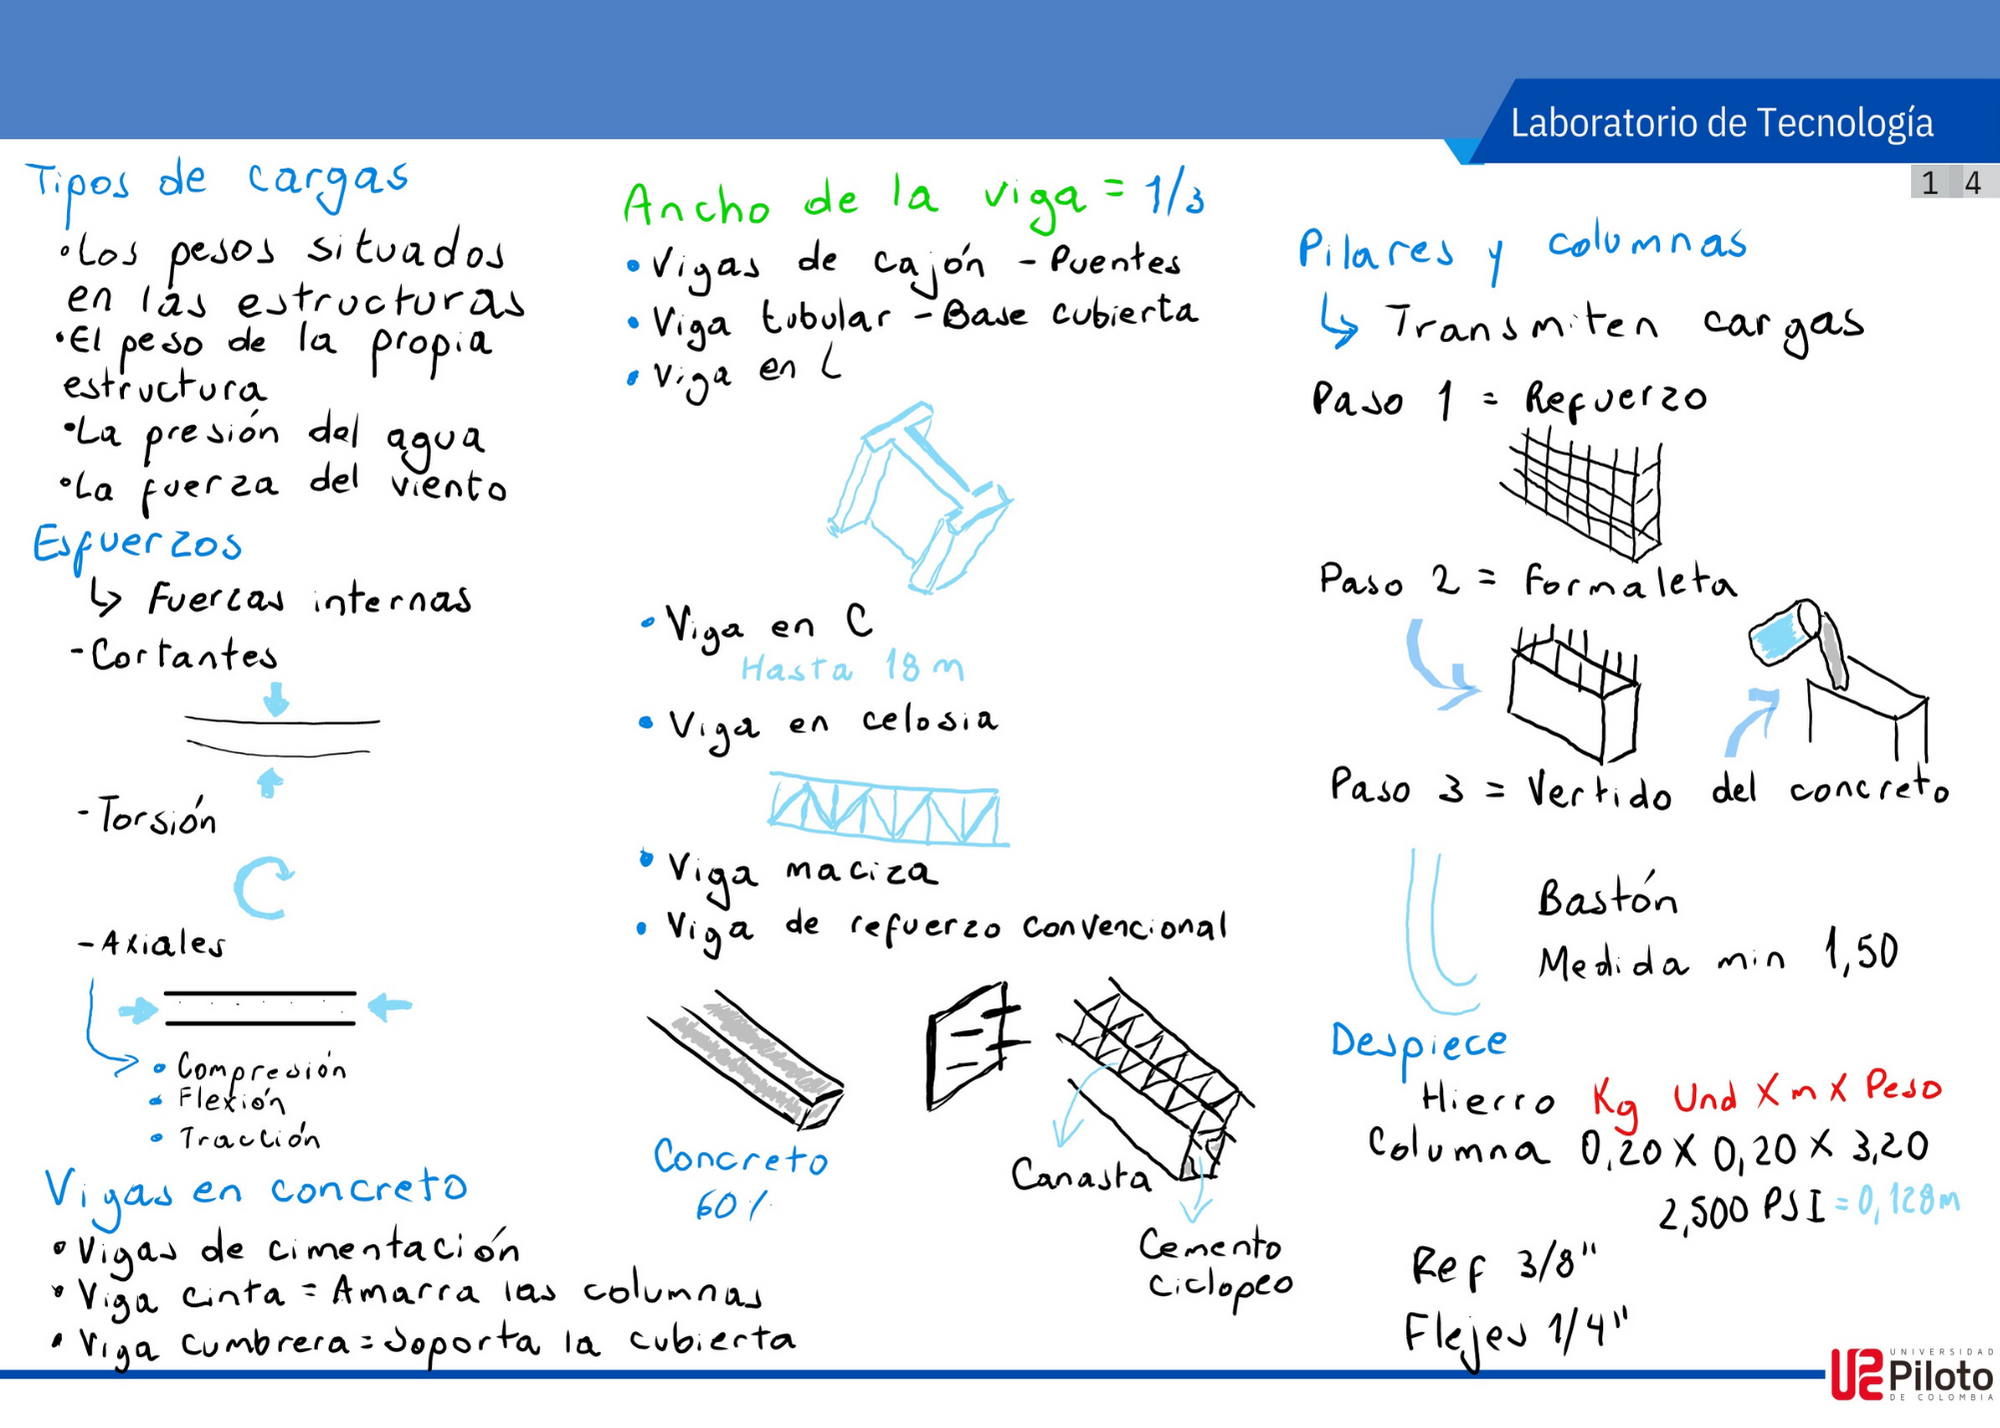 Laboratorio de Tecnología
1 4
Tipos de cargas
•Los pesos situados
en las estructuras
•El peso de la propia
estructura
•La presión del agua
•La fuerza del viento
Esfuerzos
↳ Fuerzas internas
-Cortantes
-Torsión
-Axiales
• Compresión
• Flexión
• Tracción
Vigas en concreto
• Vigas de cimentación
• Viga cinta = Amarra las columnas
• Viga cumbrera = Soporta la cubierta
Ancho de la viga = 1/3
• Vigas de cajón - Puentes
• Viga tubular - Base cubierta
• Viga en L
• Viga en C
Hasta 18 m
• Viga en celosia
• Viga maciza
• Viga de refuerzo convencional
Concreto
60%
Canasta
Cemento
ciclopeo
Pilares y columnas
↳ Transmiten cargas
Paso 1 = Refuerzo
Paso 2 = Formaleta
Paso 3 = Vertido del concreto
Bastón
Medida min 1,50
Despiece
Hierro Kg Und X m X Peso
Columna 0,20 X 0,20 X 3,20
2,500 PSI = 0,128m
Ref 3/8"
Flejes 1/4"
UNIVERSIDAD
Piloto
DE COLOMBIA